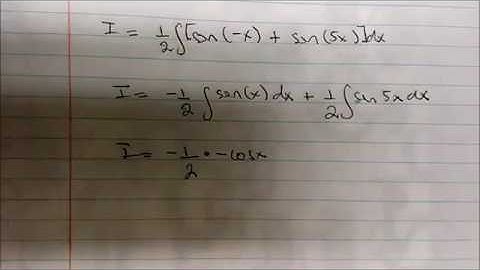 I = 1/2 ∫[sin(-x) + sin(5x)]dx
I = -1/2 ∫ sin(x) dx + 1/2 ∫ sin 5x dx
I = -1/2 • -cosx